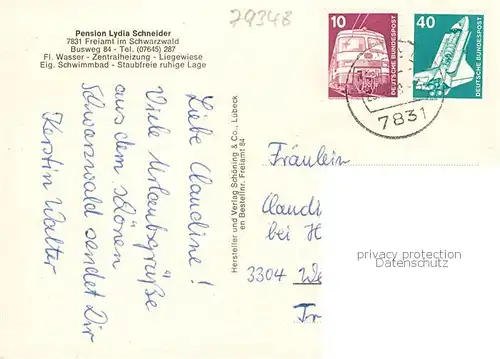 79348
Pension Lydia Schneider
7831 Freiamt im Schwarzwald
Busweg 84 - Tel. (07645) 287
Fl. Wasser - Zentralheizung - Liegewiese
Eig. Schwimmbad - Staubfreie ruhige Lage
10
DEUTSCHE BUNDESPOST
40
DEUTSCHE BUNDESPOST
7831
Liebe Claudine!
Viele Urlaubsgrüße
aus dem schönen
Schwarzwald sendet Dir
Kerstin Walter
Hersteller und Verlag Schöning & Co., Lübeck
en Bestellnr. Freiamt 84
Fräulein
Claudi
bei H
3304 We
Tr
privacy protection
Datenschutz